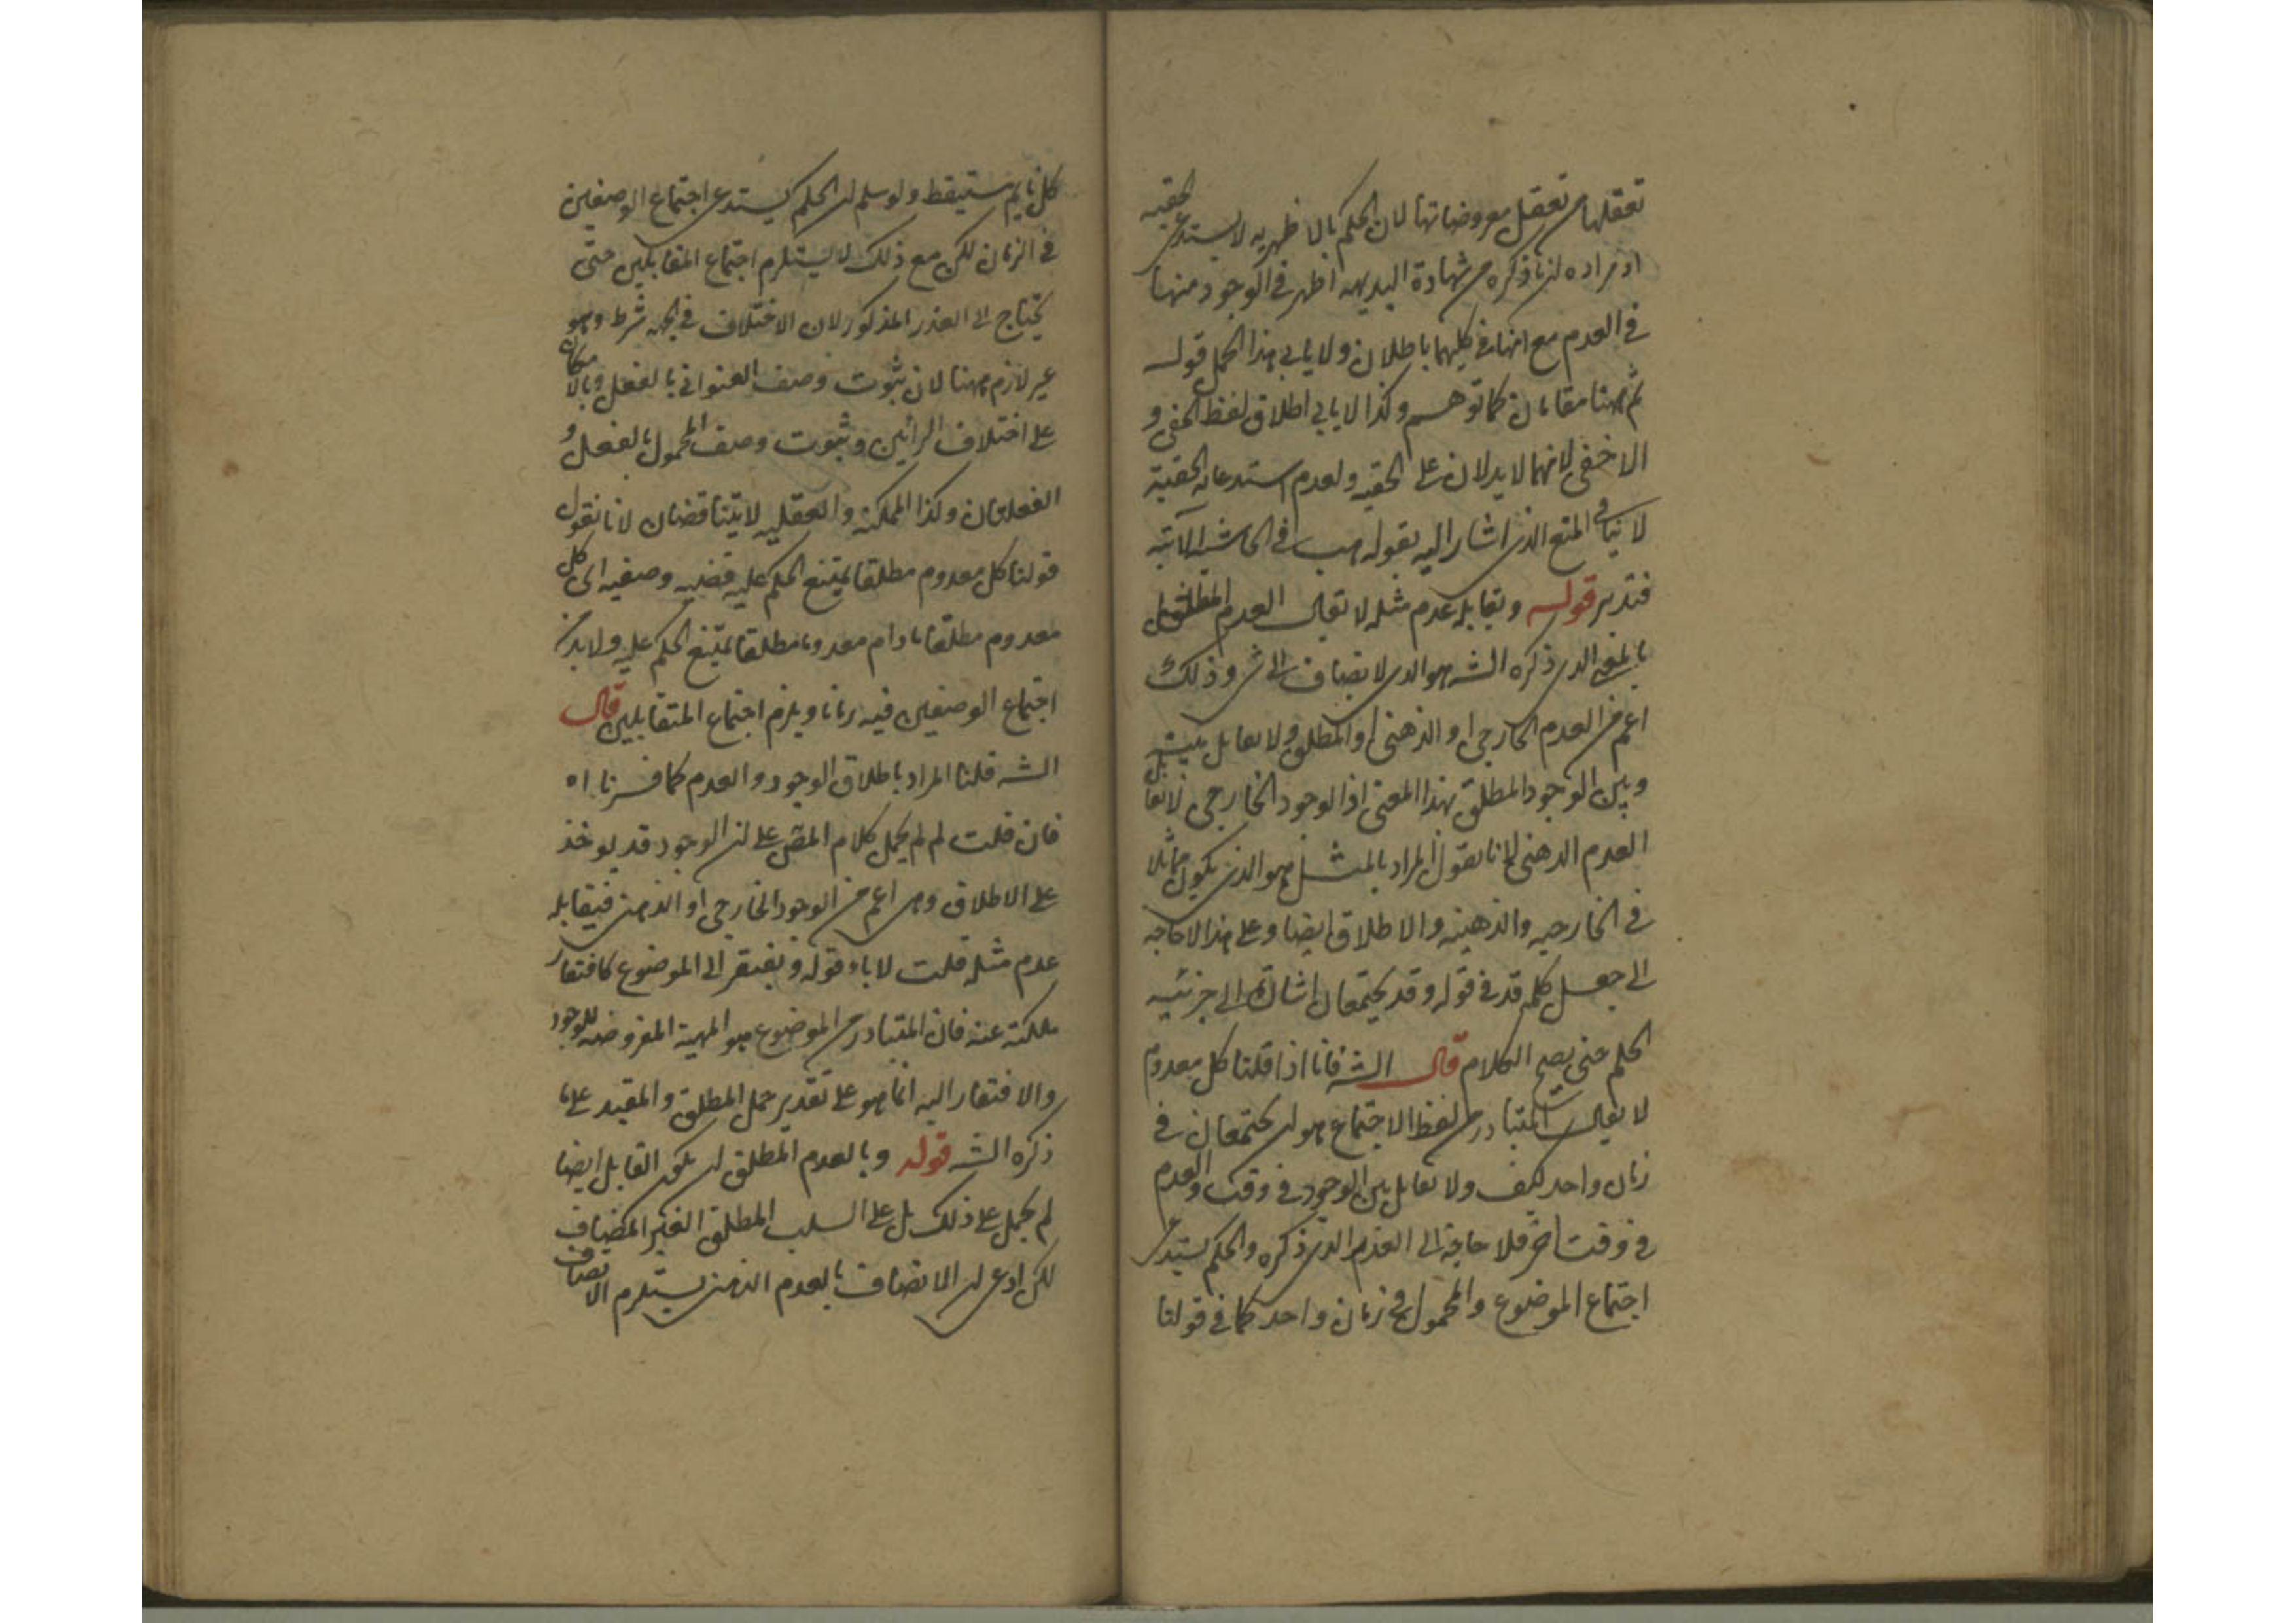 تعقلها من تعقل معروضاتها لان الحكم بالاظهريه لا يستدعى الحقيه
او مراده ان ما ذكره من شهادة البديهه اظهر فى الوجود منها
فى العدم مع انها فى كليهما باطلان ولا يابى هذا الحمل قوله
ثم ههنا مقامان كما توهم وكذا لا يابى اطلاق لفظ الخفى و
الاخفى لانهما لا يدلان على الحقيه ولعدم استدعائه الحقية
لا ينافى المنع الذى اشار اليه بقوله هب فى الحاشية الآتيه
فتدبر قوله ويقابله عدم مثله لا يقال العدم المطلق
بالمعنى الذى ذكره الشه هو الذى لا يضاف الى شى وذلك
اعم من العدم الخارجى او الذهنى او المطلق ولا تقابل بينه
وبين الوجود المطلق بهذا المعنى اذ الوجود الخارجى لا يقابل
العدم الذهنى لانا نقول المراد بالمثل هو الذى يكون مماثلا
فى الخارجيه والذهنيه والاطلاق ايضا وعلى هذا لا حاجه
الى جعل كلمه قد فى قوله وقد يجتمعان اشارة الى جزئيه
الحكم حتى يصح الكلام قال الشه فانا اذا قلنا كل معدوم
لا يقال المتبادر من لفظ الاجتماع هو ان يجتمعان فى
زمان واحد كيف ولا تقابل بين الوجود فى وقت والعدم
فى وقت آخر فلا حاجة الى العذر الذى ذكره والحكم يستدعى
اجتماع الموضوع والمحمول فى زمان واحد كما فى قولنا
كل نايم مستيقظ ولو سلم ان الحكم يستدعى اجتماع الوصفين
فى الزمان لكن مع ذلك لا يستلزم اجتماع المتقابلين حتى
يحتاج الى العذر المذكور لان الاختلاف فى الجهه شرط وهو
غير لازم ههنا لان ثبوت وصف العنوانى بالفعل وبالامكان
على اختلاف الرائين وثبوت وصف المحمول بالفعل و
الفعليتان وكذا الممكنه والعقليه لا يتناقضان لانا نقول
قولنا كل معدوم مطلقا يمتنع الحكم عليه قضيه وصفيه اى كل
معدوم مطلقا مادام معدوما مطلقا يمتنع الحكم عليه ولابد من
اجتماع الوصفين فيه زمانا ويلزم اجتماع المتقابلين قال
الشه قلنا المراد باطلاق الوجود والعدم كما فسرنا اه
فان قلت لم لم يحمل كلام المص على ان الوجود قد يوخذ
على الاطلاق وهى اعم من الوجود الخارجى او الذهنى فيقابله
عدم مثله قلت لاباء قوله ويفتقر الى الموضوع كافتقار
ملكته عنه فان المتبادر من الموضوع هو المهية المعروضه للوجود
والافتقار اليه انما هو على تقدير حمل المطلق والمقيد على ما
ذكره الشه قوله وبالعدم المطلق ان يكون القابل ايضا
لم يحمل على ذلك بل على السلب المطلق الغير المضاف
لكن ادعى ان الاتصاف بالعدم الذهنى يستلزم الاتصاف